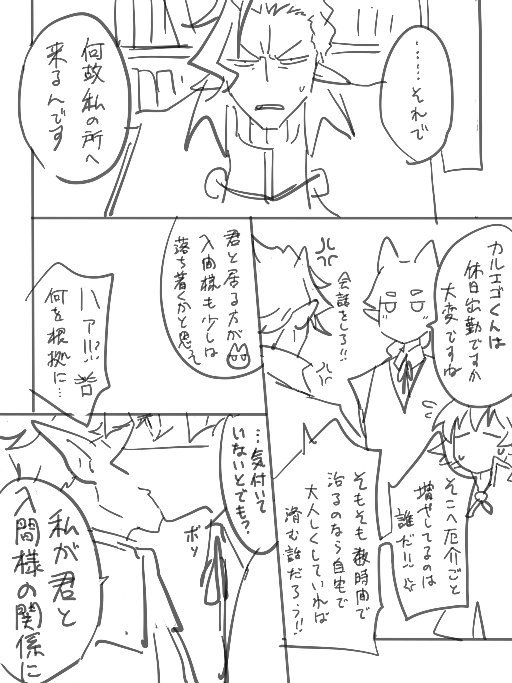 ……それで
何故私の所へ
来るんです
カルエゴくんは
休日出勤ですか
大変ですね
そこへ厄介ごと
増やしてるのは
誰だ!!
会話をしろ!!
そもそも数時間で
治るのなら自宅で
大人しくしていれば
済む話だろう!!
君と居る方が
入間様も少しは
落ち着くかと思って
ハァ!!?
何を根拠に…
…気付いて
いないとでも?
ボソ
私が君と
入間様の関係に